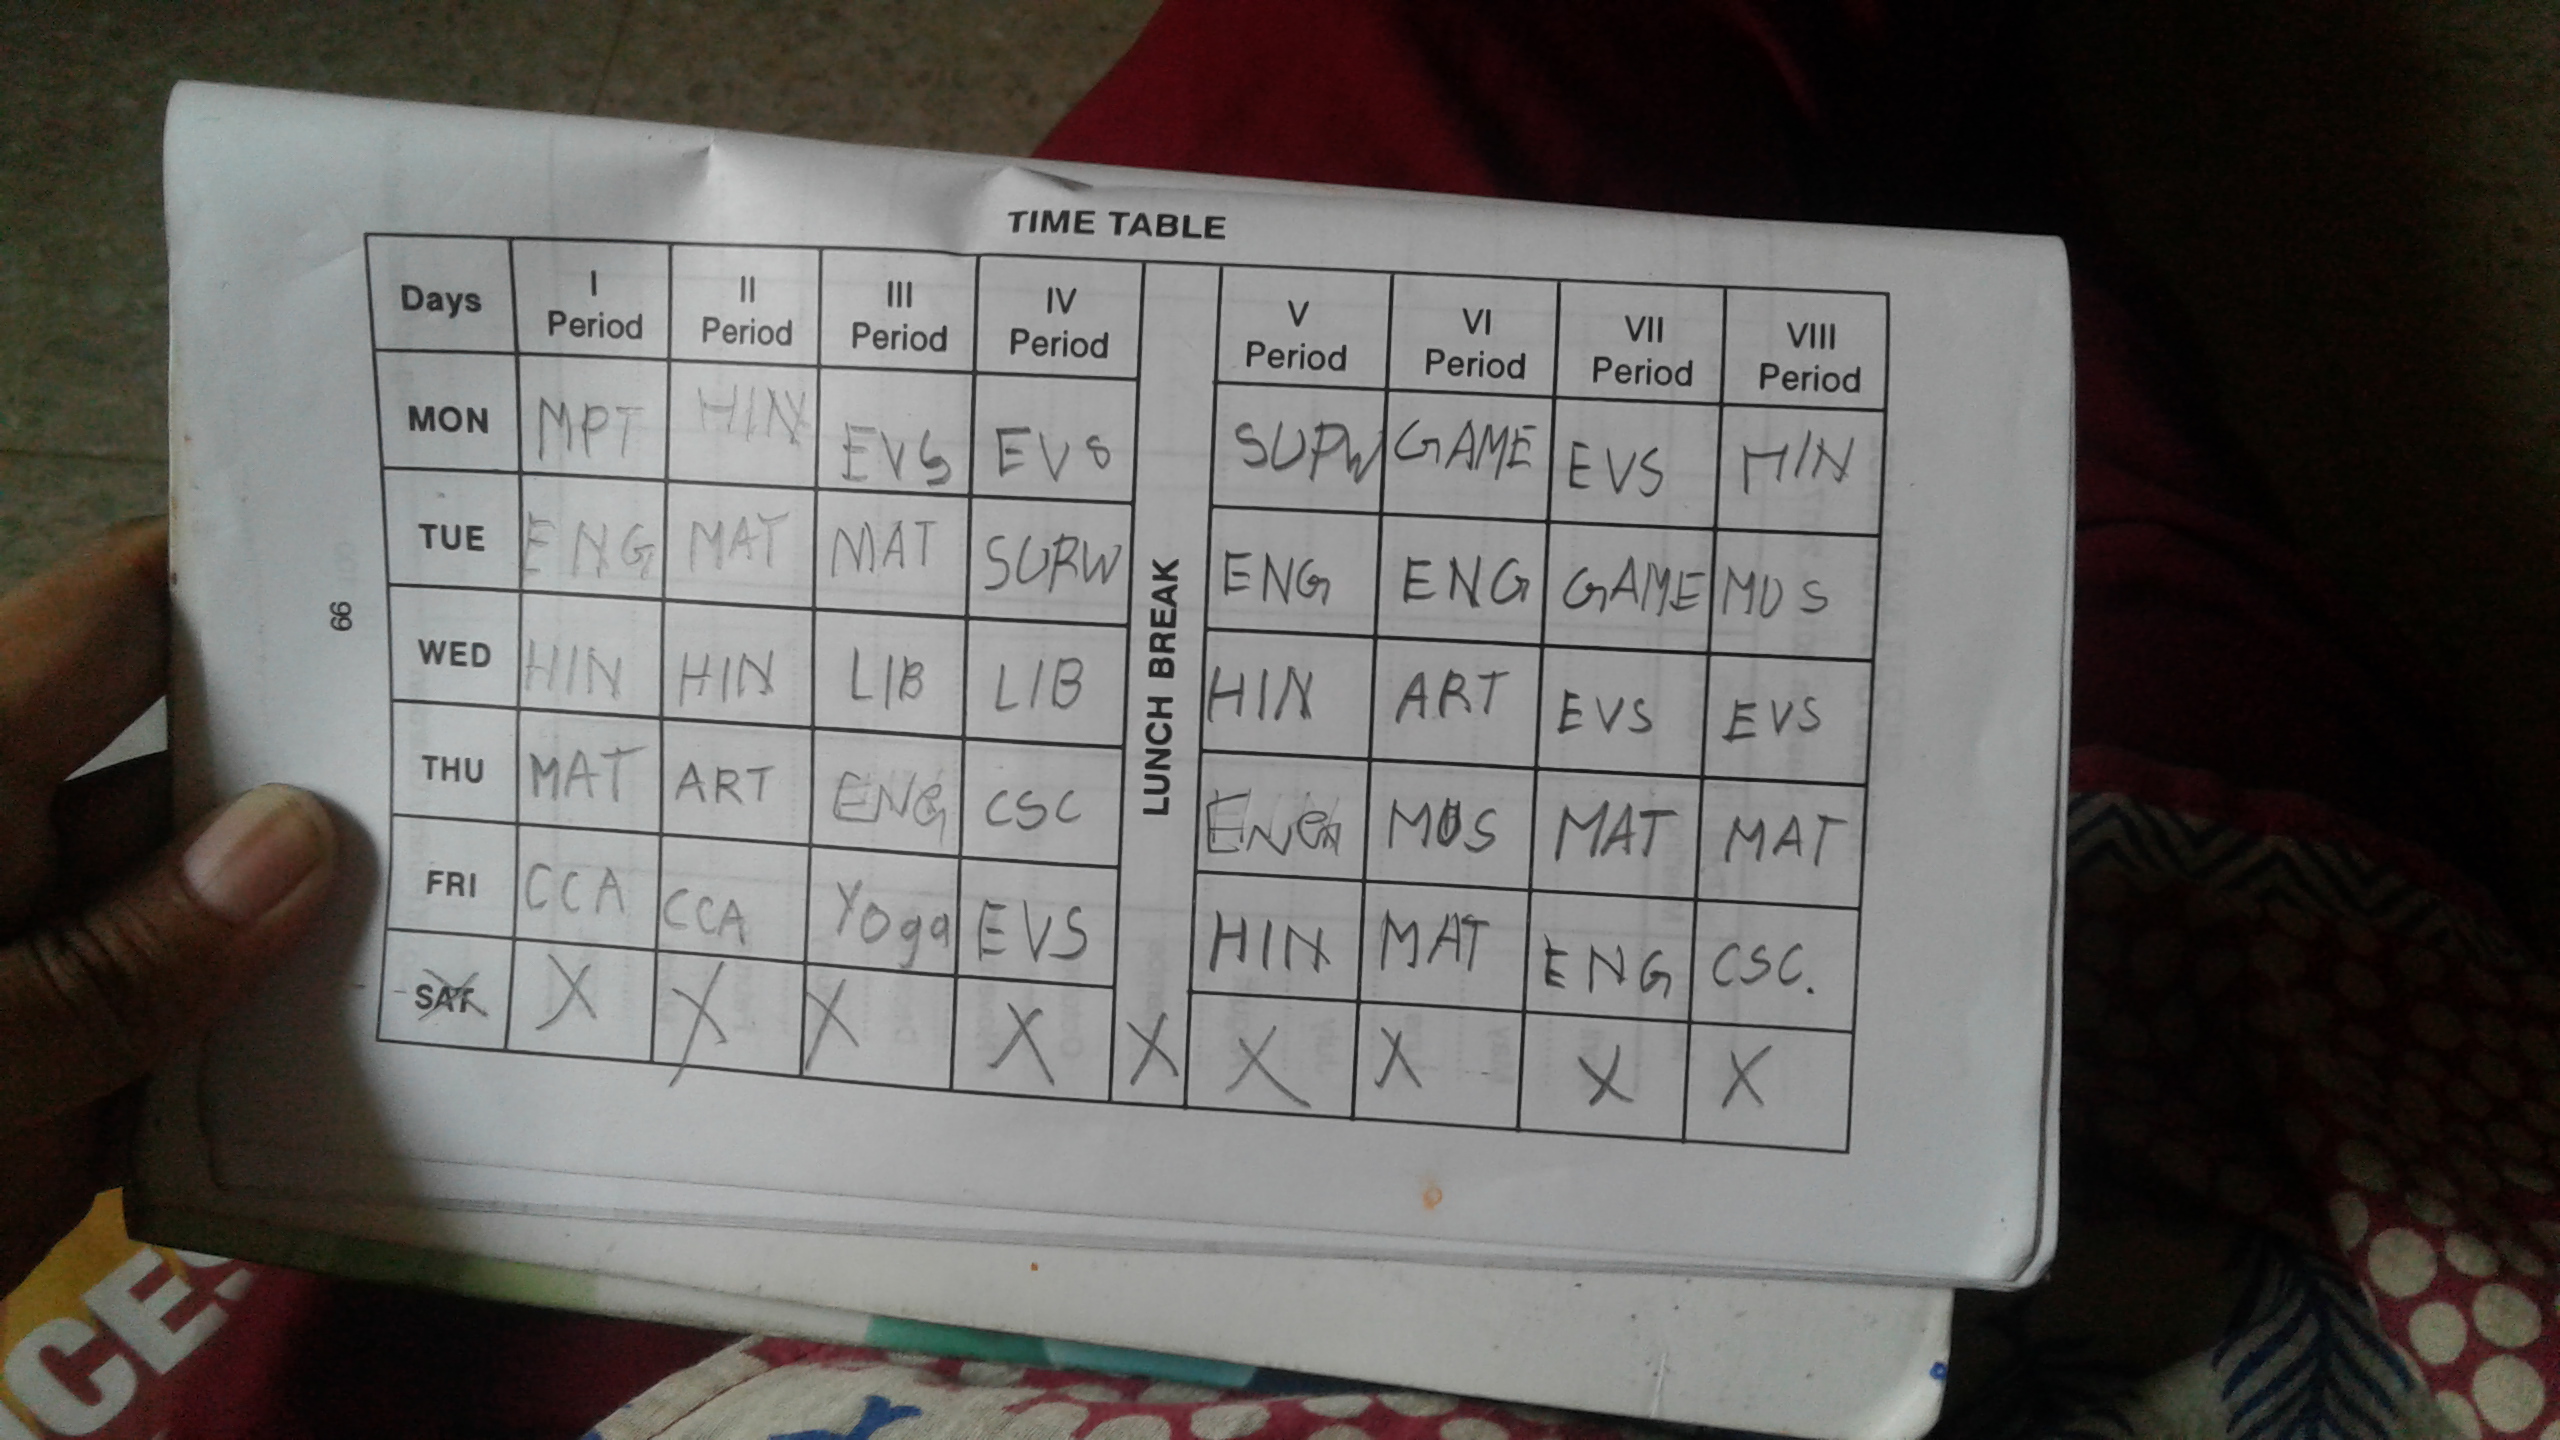 TIME TABLE
Days I Period II Period III Period IV Period LUNCH BREAK V Period VI Period VII Period VIII Period
MON MPT HIN EVS EVS SUPW GAME EVS HIN
TUE ENG MAT MAT SUPW ENG ENG GAME MUS
WED HIN HIN LIB LIB HIN ART EVS EVS
THU MAT ART ENG CSC ENG MUS MAT MAT
FRI CCA CCA Yoga EVS HIN MAT ENG CSC.
SAT X X X X X X X X X
66
CES